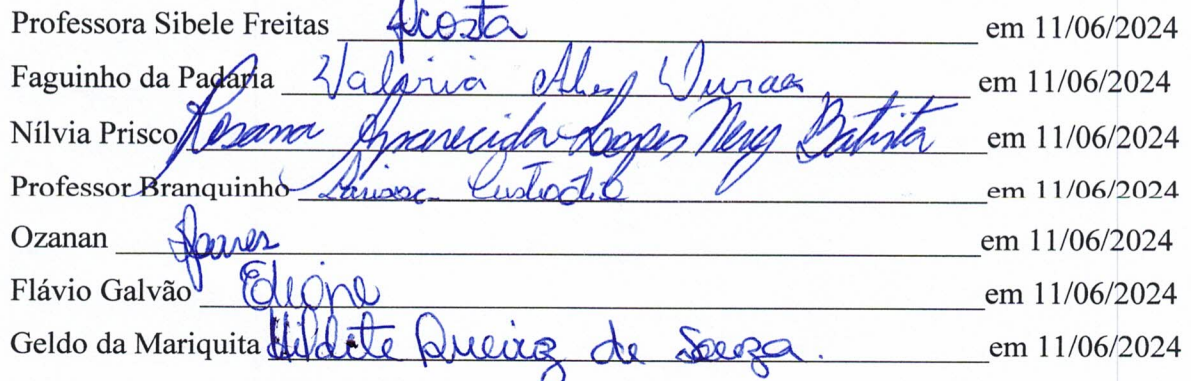 Professora Sibele Freitas Acosta em 11/06/2024
Faguinho da Padaria Valéria Alves em 11/06/2024
Nílvia Prisco Rosana Aparecida Lopes Nery Batista em 11/06/2024
Professor Branquinho Larissa Custodio em 11/06/2024
Ozanan Soares em 11/06/2024
Flávio Galvão Edione em 11/06/2024
Geldo da Mariquita Hildete Queiroz de Souza. em 11/06/2024